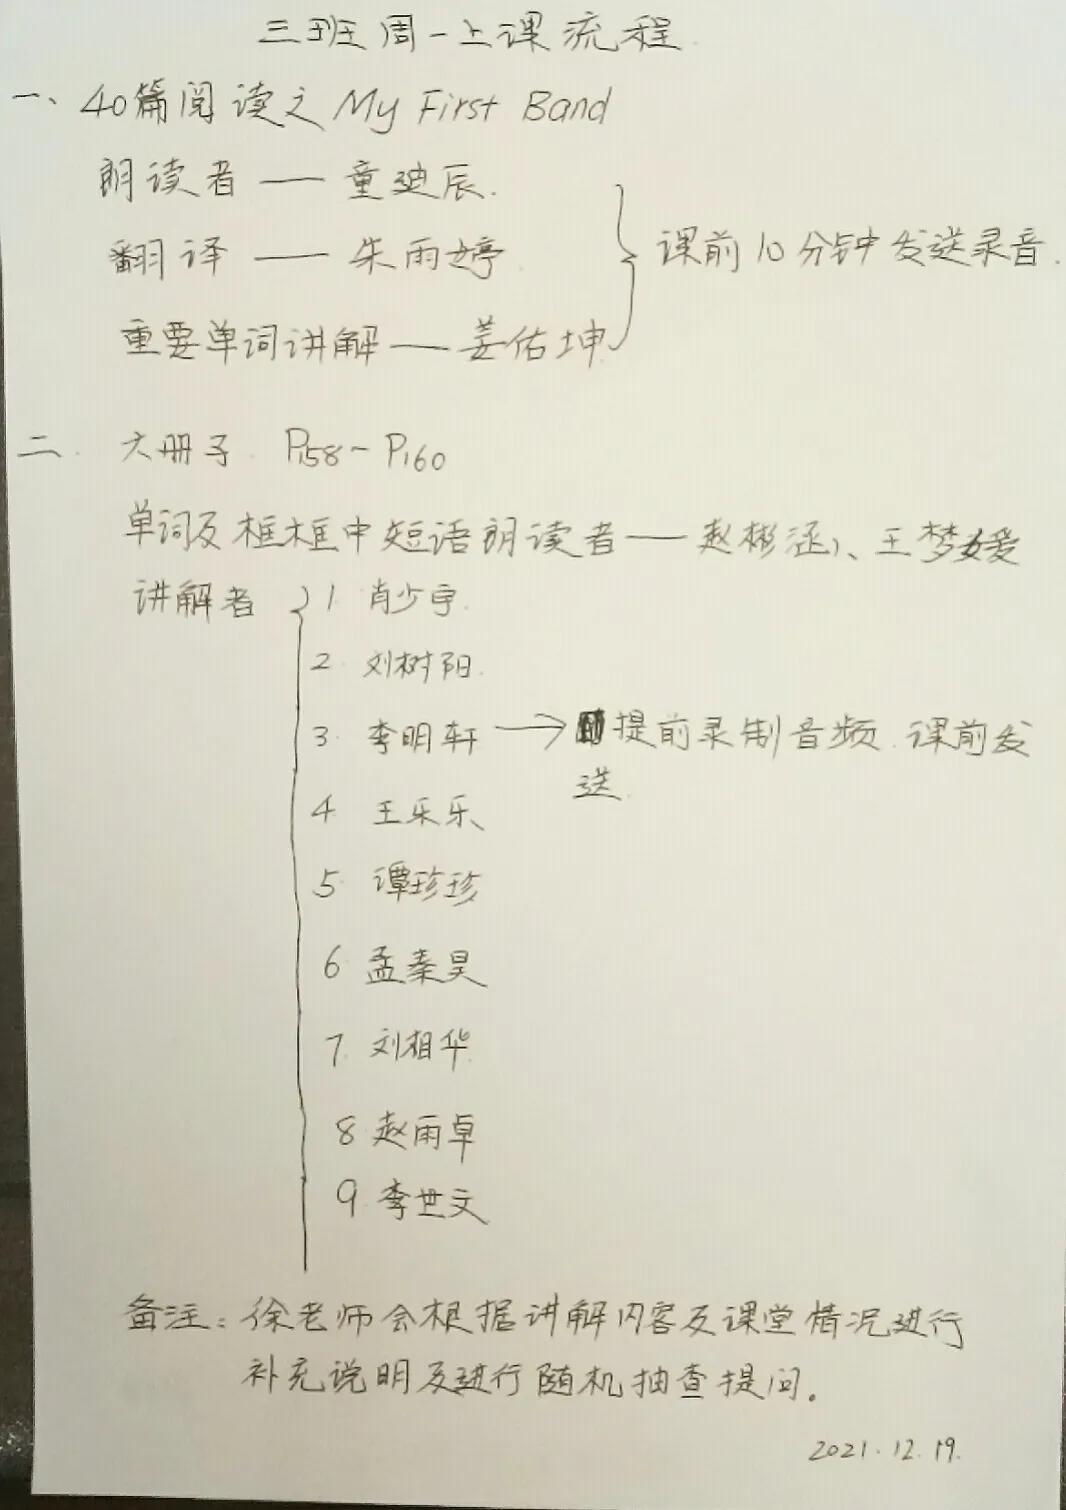 三班周一上课流程
一、40篇阅读之 My First Band
朗读者 —— 童迦辰.
翻译 —— 朱雨婷
重要单词讲解 —— 姜佑坤
课前10分钟发送录音.
二. 大册子. P158-P160
单词及框框中短语朗读者 —— 赵彬涵、王梦媛
讲解者
1. 肖少宇.
2. 刘树阳.
3. 李明轩 → 提前录制音频.课前发
送.
4. 王乐乐、
5. 谭珍珍
6 孟秦昊
7. 刘相华
8 赵雨卓
9. 李世文
备注:徐老师会根据讲解内容及课堂情况进行
补充说明及进行随机抽查提问。
2021.12.19.